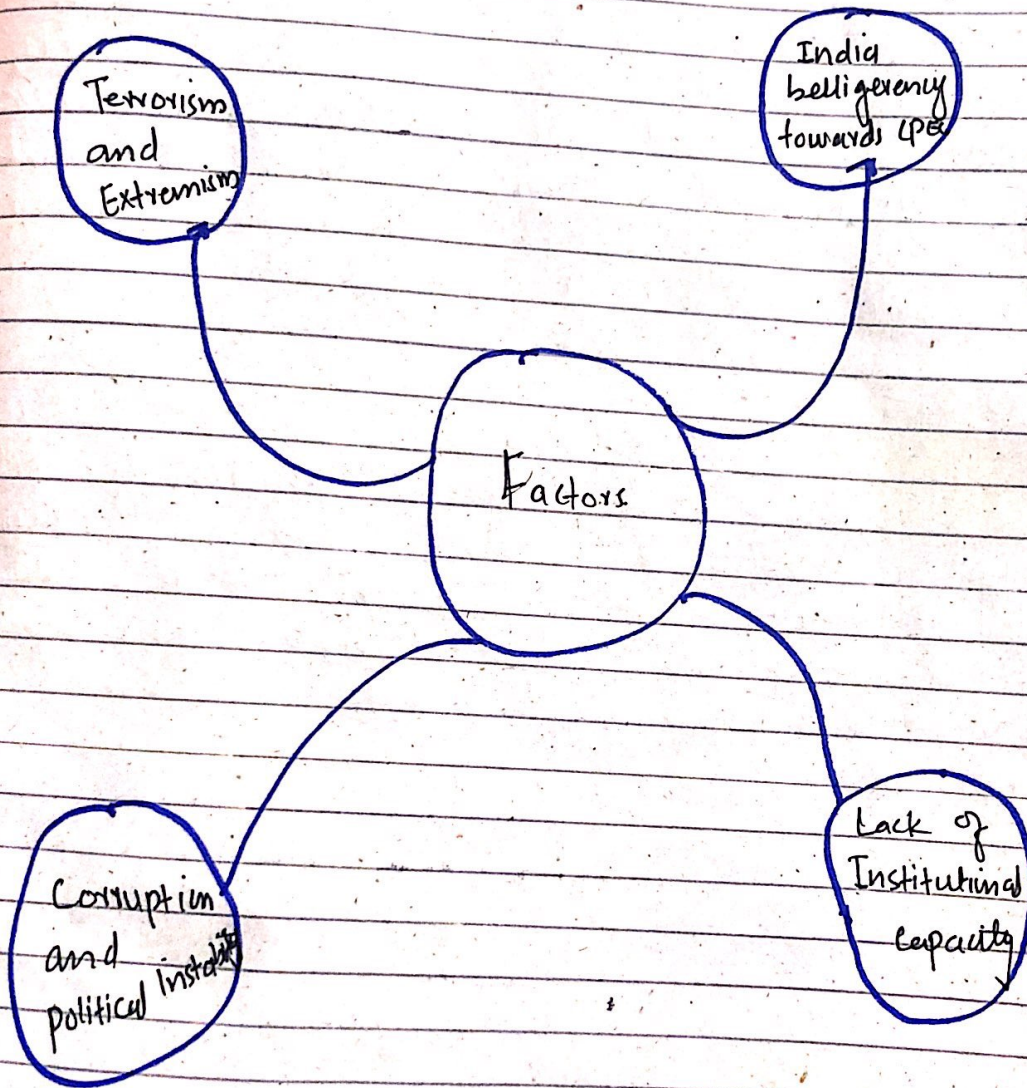 Terrorism
and
Extremism
India
belligerency
towards CPEC
Factors
Corruption
and
political Instability
Lack of
Institutional
capacity